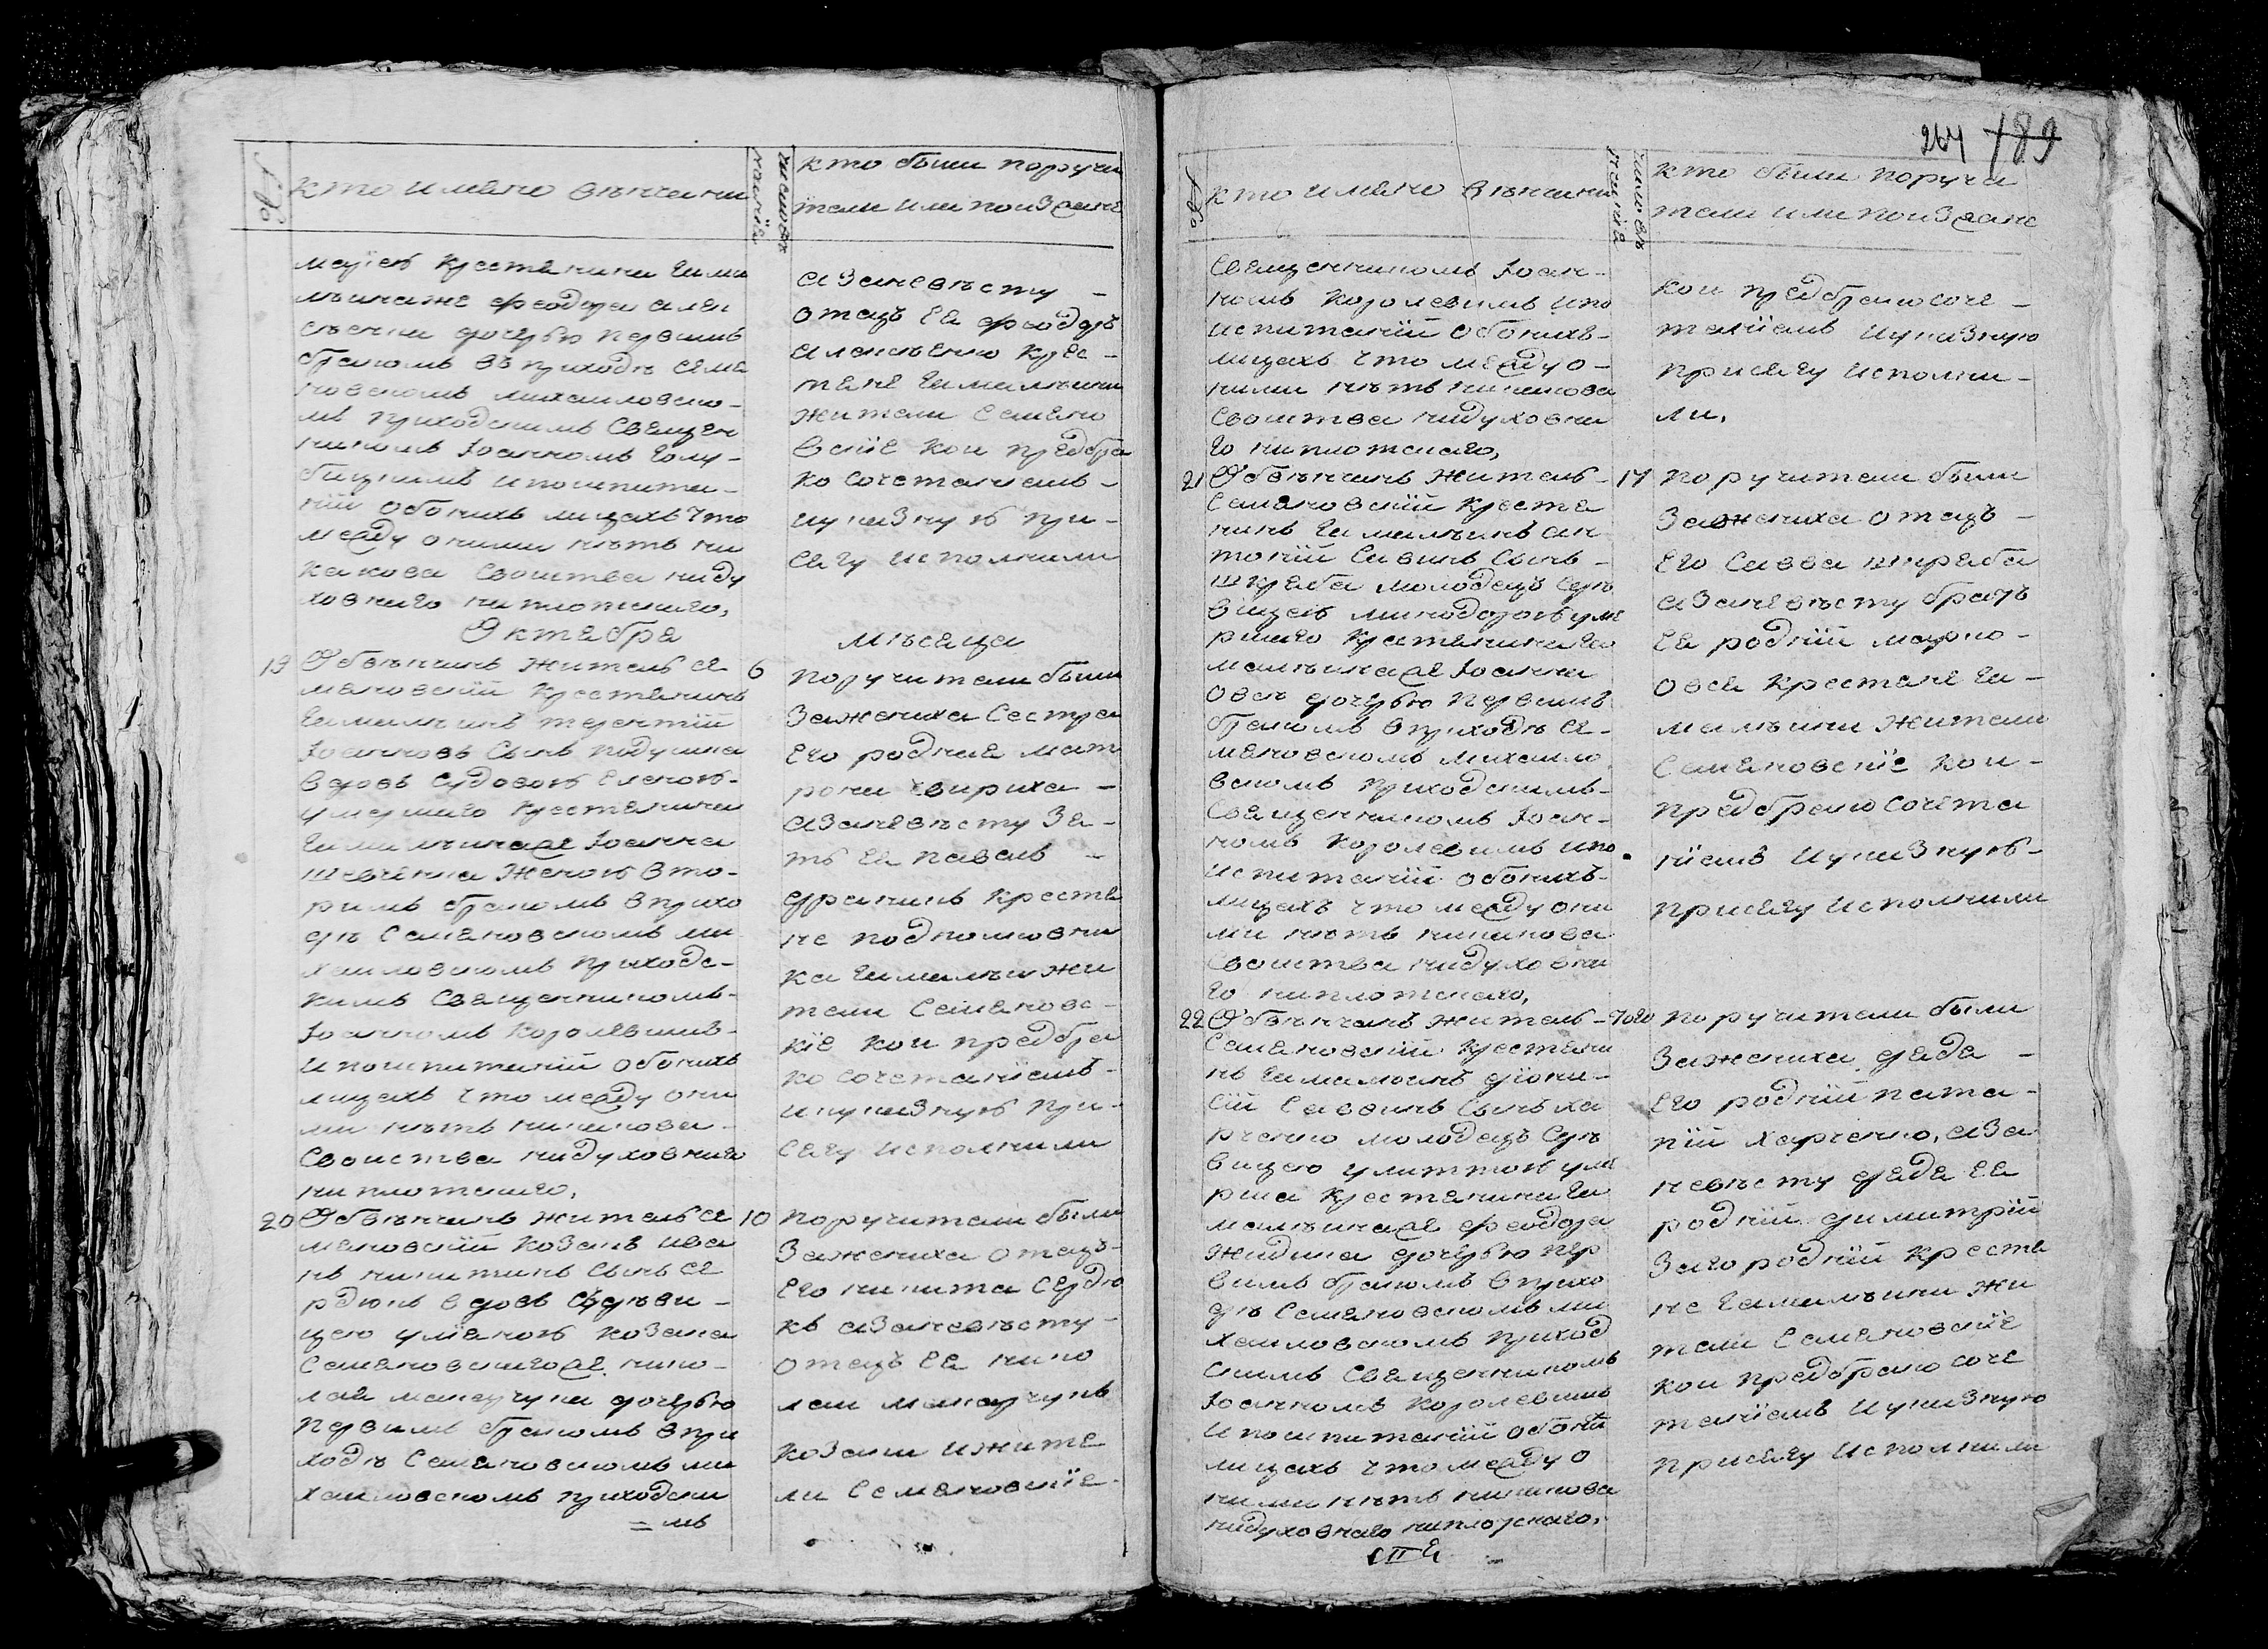 №
кто имѣно вѣнчани
числѣхъ
кто были поручи
тели или поизжане
маріею крестянина гама
лѣинаже феодора алек
сѣенка дочерью первимъ
бракомъ въ приходѣ семя
новскомъ михайловско-
мъ приходскимъ священ
никомъ Іоанномъ голу-
бицкимъ и поиспита-
ніи обоихъ лицахъ что
между оними нѣтъ ни
какова своиства ниду
ховнаго ни плотскаго,
Октября
19 Обвѣнчанъ житель се 6
мяновскій крестянинъ
гамалѣинъ терентій
Іоанновъ синъ подушка
вдовъ судовою еленою-
умершаго крестянина
гамалѣинаже Іоанна
шевченка женою вто-
римъ бракомъ в прихо
дѣ Семяновскомъ ми
хайловскомъ приходс-
кимъ священникомъ-
Іоанномъ королевимъ-
и поиспитаніи обоихъ
лицахъ что между они
ми нѣтъ никакова-
своиства нидуховнаго
ни плотскаго,
20 Обвѣнчанъ житель се 10
мяновскій козакъ ива
нъ никитинъ синъ се
рдюкъ вдовъ сѣдѣви-
цею уляною козака
Семяновскагоже нико-
лая макарчука дочерью
первимъ бракомъ в при
ходѣ Семяновскомъ ми
хайловскомъ приходски
= мъ
а за невѣсту -
отецъ ея феодоръ
алексѣенко крес-
тяне гамалѣини
жители Семяно
вскіе кои предбра
ко сочетаніемъ-
иуказную при-
сягу исполнили
мѣсяца
поручители были
за жениха сестра
его родная мат
рона свириха -
а за невѣсту зя-
ть ея павелъ -
дранникъ крестя
не подполковни
ка гамалѣи жи
тели Семяновс-
кіе кои предбра
ко сочетаніемъ-
и указную при-
сягу исполнили
поручители были
за жениха отецъ-
его никита сердю
къ а за невѣсту-
отецъ ея нико
лай макарчукъ
козаки и жите
ли Семяновскіе-
264 189
№
кто имѣно вѣнчани
числѣхъ
кто были поручи
тели или поизжане
священникомъ Іоан-
номъ королевимъ и по
испитаніи обоихъ-
лицахъ что между о-
ними нѣтъ никакова
своиства нидуховна
го ни плотскаго,
21 Обвѣнчанъ житель- 17
Семяновскій крестя
нинъ гамалѣинъ ан
тоній савинъ синъ-
шкраба молодецъ сдѣ
вицею минодорою уме
ршаго крестянина га
малѣинаже Іоанна
овся дочерью первимъ
бракомъ в приходѣ се-
мяновскомъ михайло
вскомъ приходскимъ-
священникомъ Іоан-
номъ королевимъ и по
испитаніи обоихъ-
лицахъ что между они
ми нѣтъ никакова
своиства нидуховна
го ни плотскаго,
22 Обвѣнчанъ житель- того
Семяновскій крестяни
нъ гамалѣинъ діони-
сій савинъ синъ ха
рченко молодецъ сдѣ
вицею улиттою уме
рша крестянина га
малѣинаже феодора
жидика дочерью пер
вимъ бракомъ в прихо
дѣ Семяновскомъ ми
хайловскомъ приход
скимъ священникомъ
Іоанномъ королевимъ
и поиспитаніи обоихъ
лицахъ что между о
ними нѣтъ никакова
нидуховнаго ни плотскаго,
кои предбрако соче-
таніемъ иуказную
присягу исполни-
ли,
поручители были
за жениха отецъ-
его савва шкраба
а за невѣсту братъ
ея родній марко-
овся крестяне га-
малѣини жители
Семяновскіе кои-
предбрако сочета
ніемъ иуказную-
присягу исполнили
поручители были
за жениха дядя -
его родній пата-
пій харченко, а за
невѣсту дядя ея
родній димитрій
загородній крестя
не гамалѣини жи
тели Семяновскіе
кои предбрако соче
таніемъ иуказную
присягу исполнили